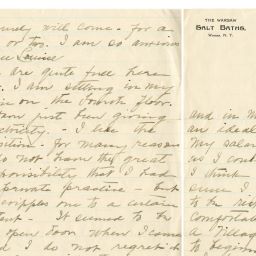 and will come - for a
or two. I am so anxious
see Louise
are quite free here
I am sitting in my
on the Fourth Floor.
am just been giving
- I like the
for many reasons
do not have the great
responsibility that I had
private practice - but
cripples one to a certain
It seemed to be
open door when I came
I do not regret it
THE WARSAW
SALT BATHS.
WARSAW, N. Y.
and in m
an ideal
My salar
as I coul
I think
since I
to be
Comfortab
a Village
to begin